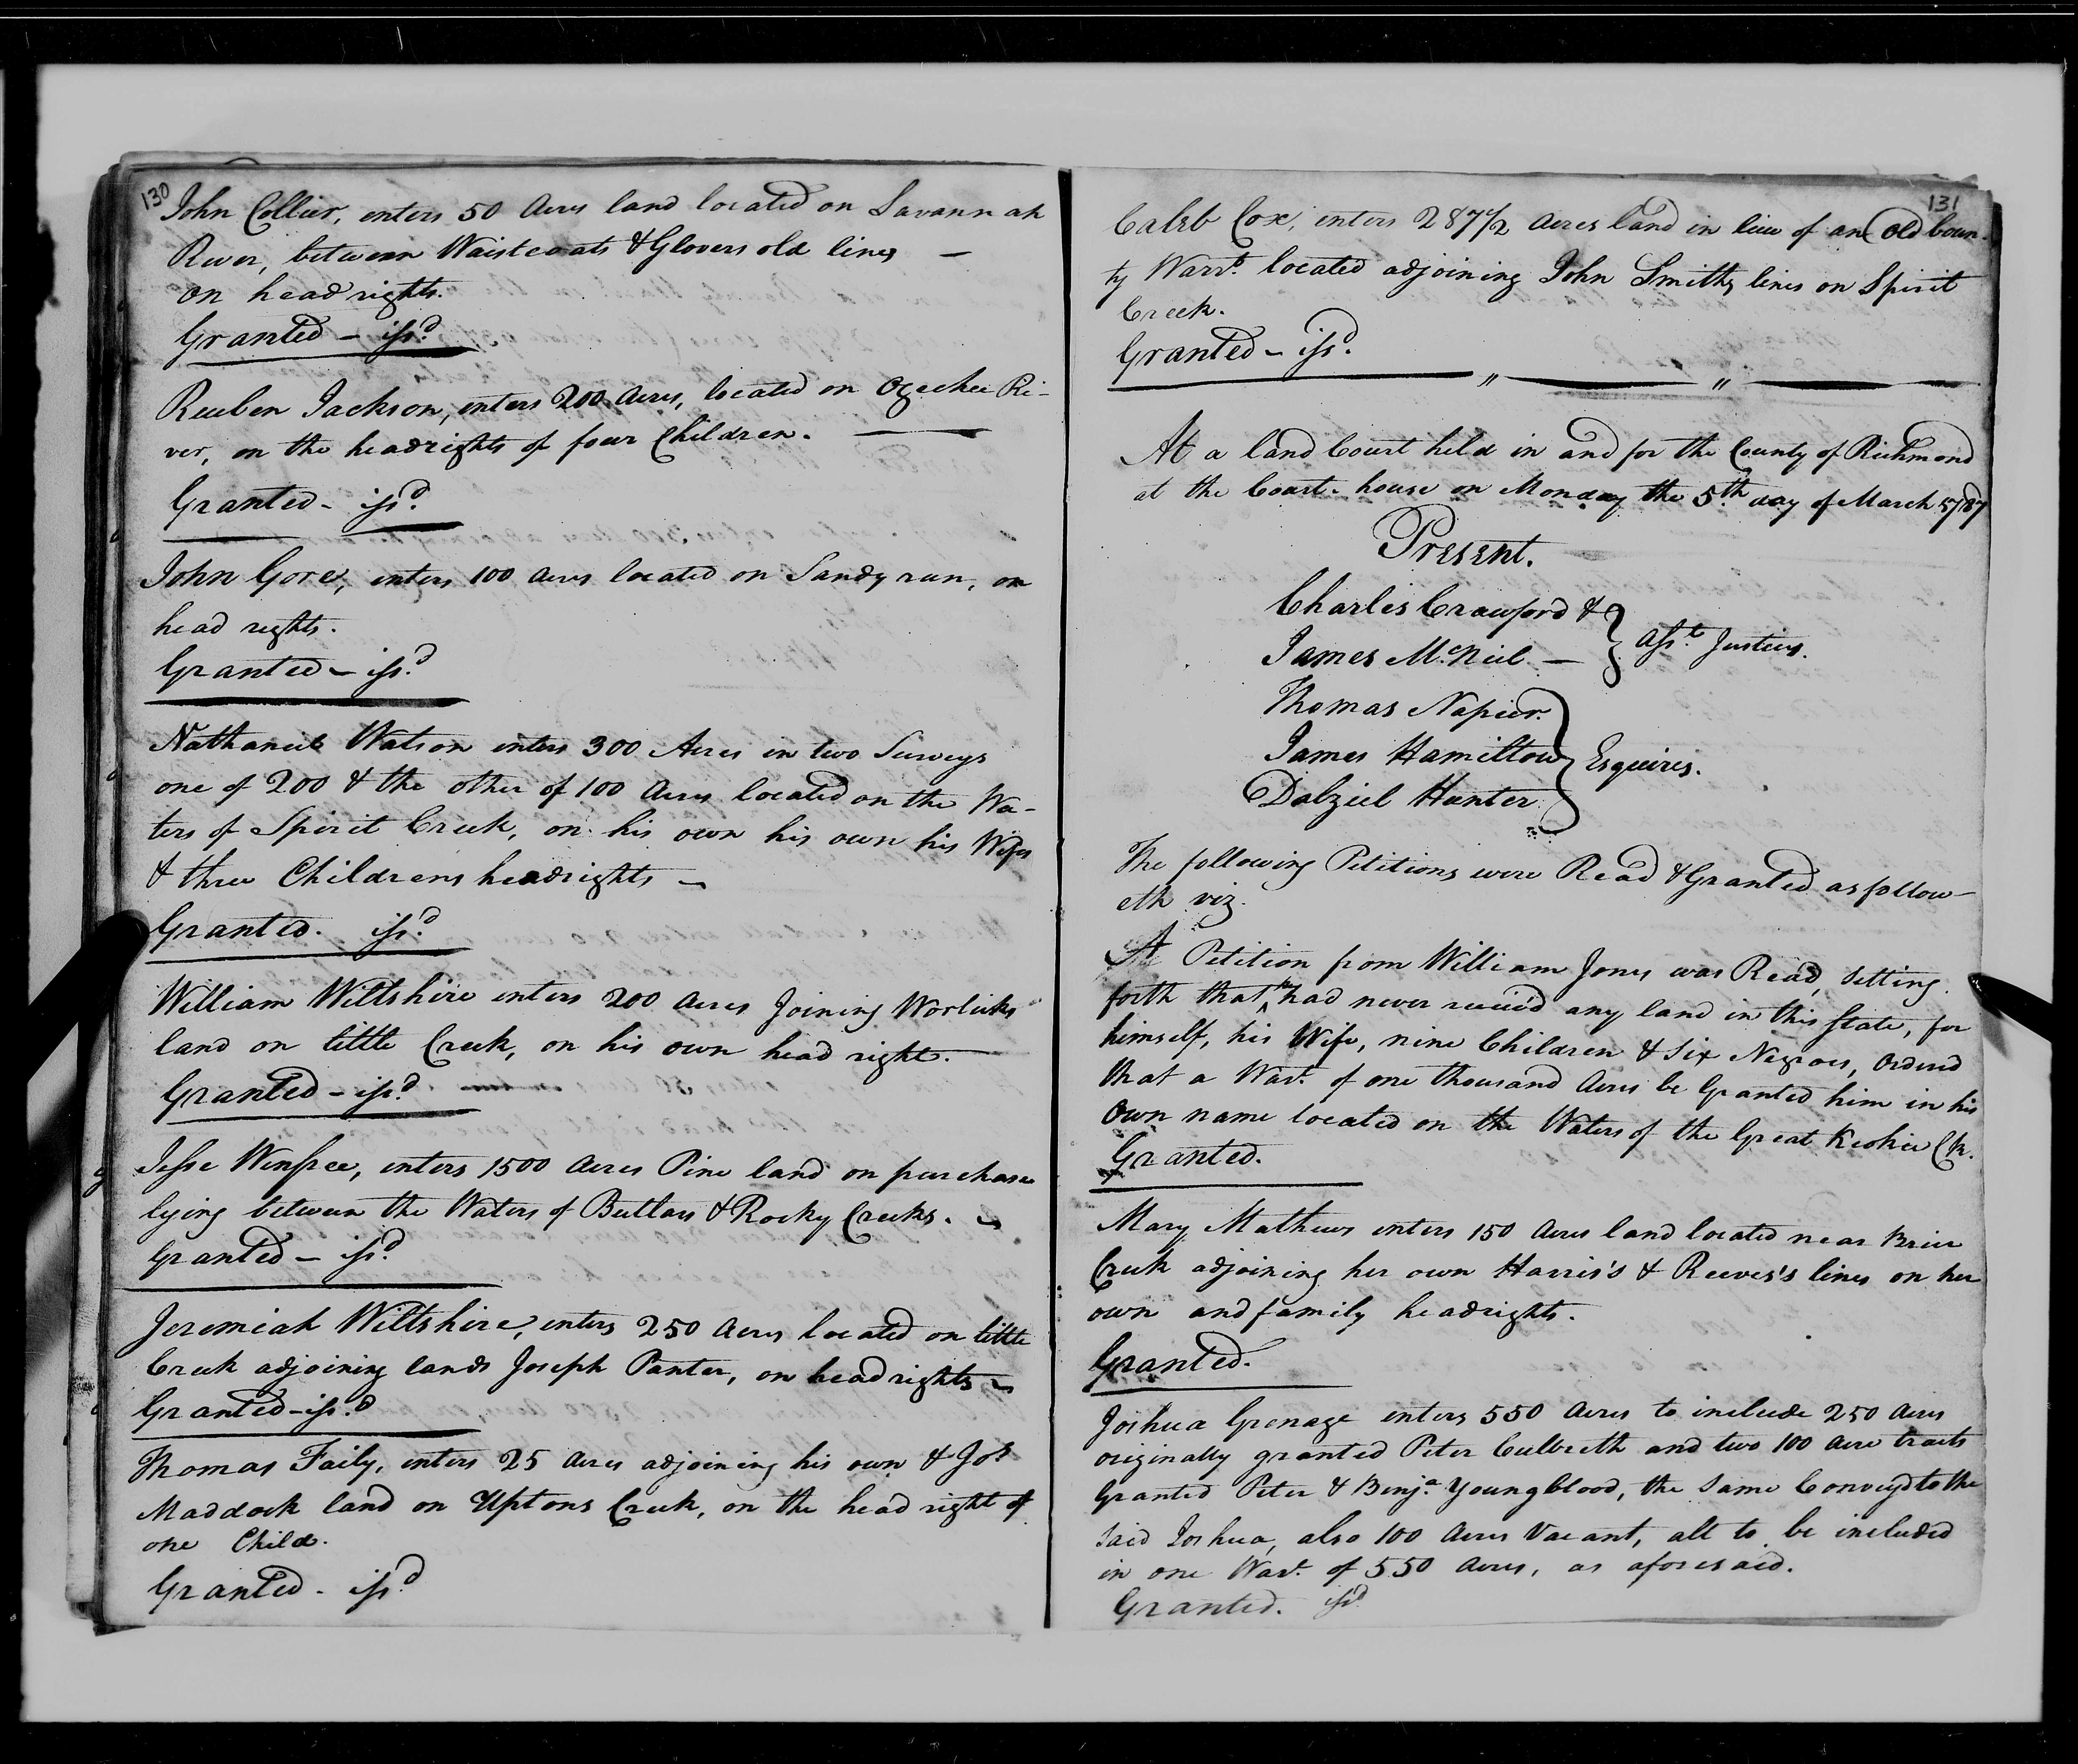 130
John Collier, enters 50 Acres land located on Savannah
River, between Waistcoats & Glovers old lines —
on head rights.
Granted — issd.
Reuben Jackson, enters 200 Acres, located on Ogechee Ri-
ver, on the headrights of four Children.
Granted - issd.
John Gore, enters 100 Acres located on Sandy run, on
head rights.
Granted — issd.
Nathaniel Watson enters 300 Acres in two Surveys
one of 200 & the other of 100 Acres located on the Wa-
ters of Spirit Creek, on his own his own his Wifes
& three Childrens headrights —
Granted. issd.
William Wiltshire enters 200 Acres Joining Worlicks
land on little Creek, on his own head right.
Granted - issd.
Jesse Winfree, enters 1500 Acres Pine land on purchase
lying between the Waters of Butlars & Rocky Creeks.
Granted — issd.
Jeremiah Wiltshire, enters 250 Acres located on little
Creek adjoining lands Joseph Panter, on headrights
Granted - issd.
Thomas Faily, enters 25 Acres adjoining his own & Jos
Maddock land on Uptons Creek, on the head right of
one Child.
Granted - issd.
131
Caleb Cox, enters 287 1/2 Acres land in lieu of an Old boun-
ty Warrt. located adjoining John Smiths lines on Spirit
Creek.
Granted - issd.
At a land Court held in and for the County of Richmond
at the Court-house on Monday the 5th day of March 1787
Present.
Charles Crawford &
James McNeil — } Asst. Justices.
Thomas Napier.
James Hamilton } Esquires.
Dalziel Hunter
The following Petitions were Read & Granted as follow-
eth viz.
A Petition from William Jones was Read, setting
forth that he had never receiv'd any land in this State, for
himself, his Wife, nine Children & Six Negroes, Ordered
that a Wart. of one thousand Acres be Granted him in his
Own name located on the Waters of the Great Keokee Ck.
Granted.
Mary Mathews enters 150 Acres land located near Brier
Creek adjoining her own Harris's & Reeves's lines on her
own and family headrights.
Granted.
Joshua Grenage enters 550 Acres to include 250 Acres
originally granted Peter Culbreth and two 100 Acre tracts
Granted Peter & Benja. Youngblood, the same Convey'd to the
said Joshua, also 100 Acres Vacant, all to be included
in one Wart. of 550 Acres, as aforesaid.
Granted. issd.